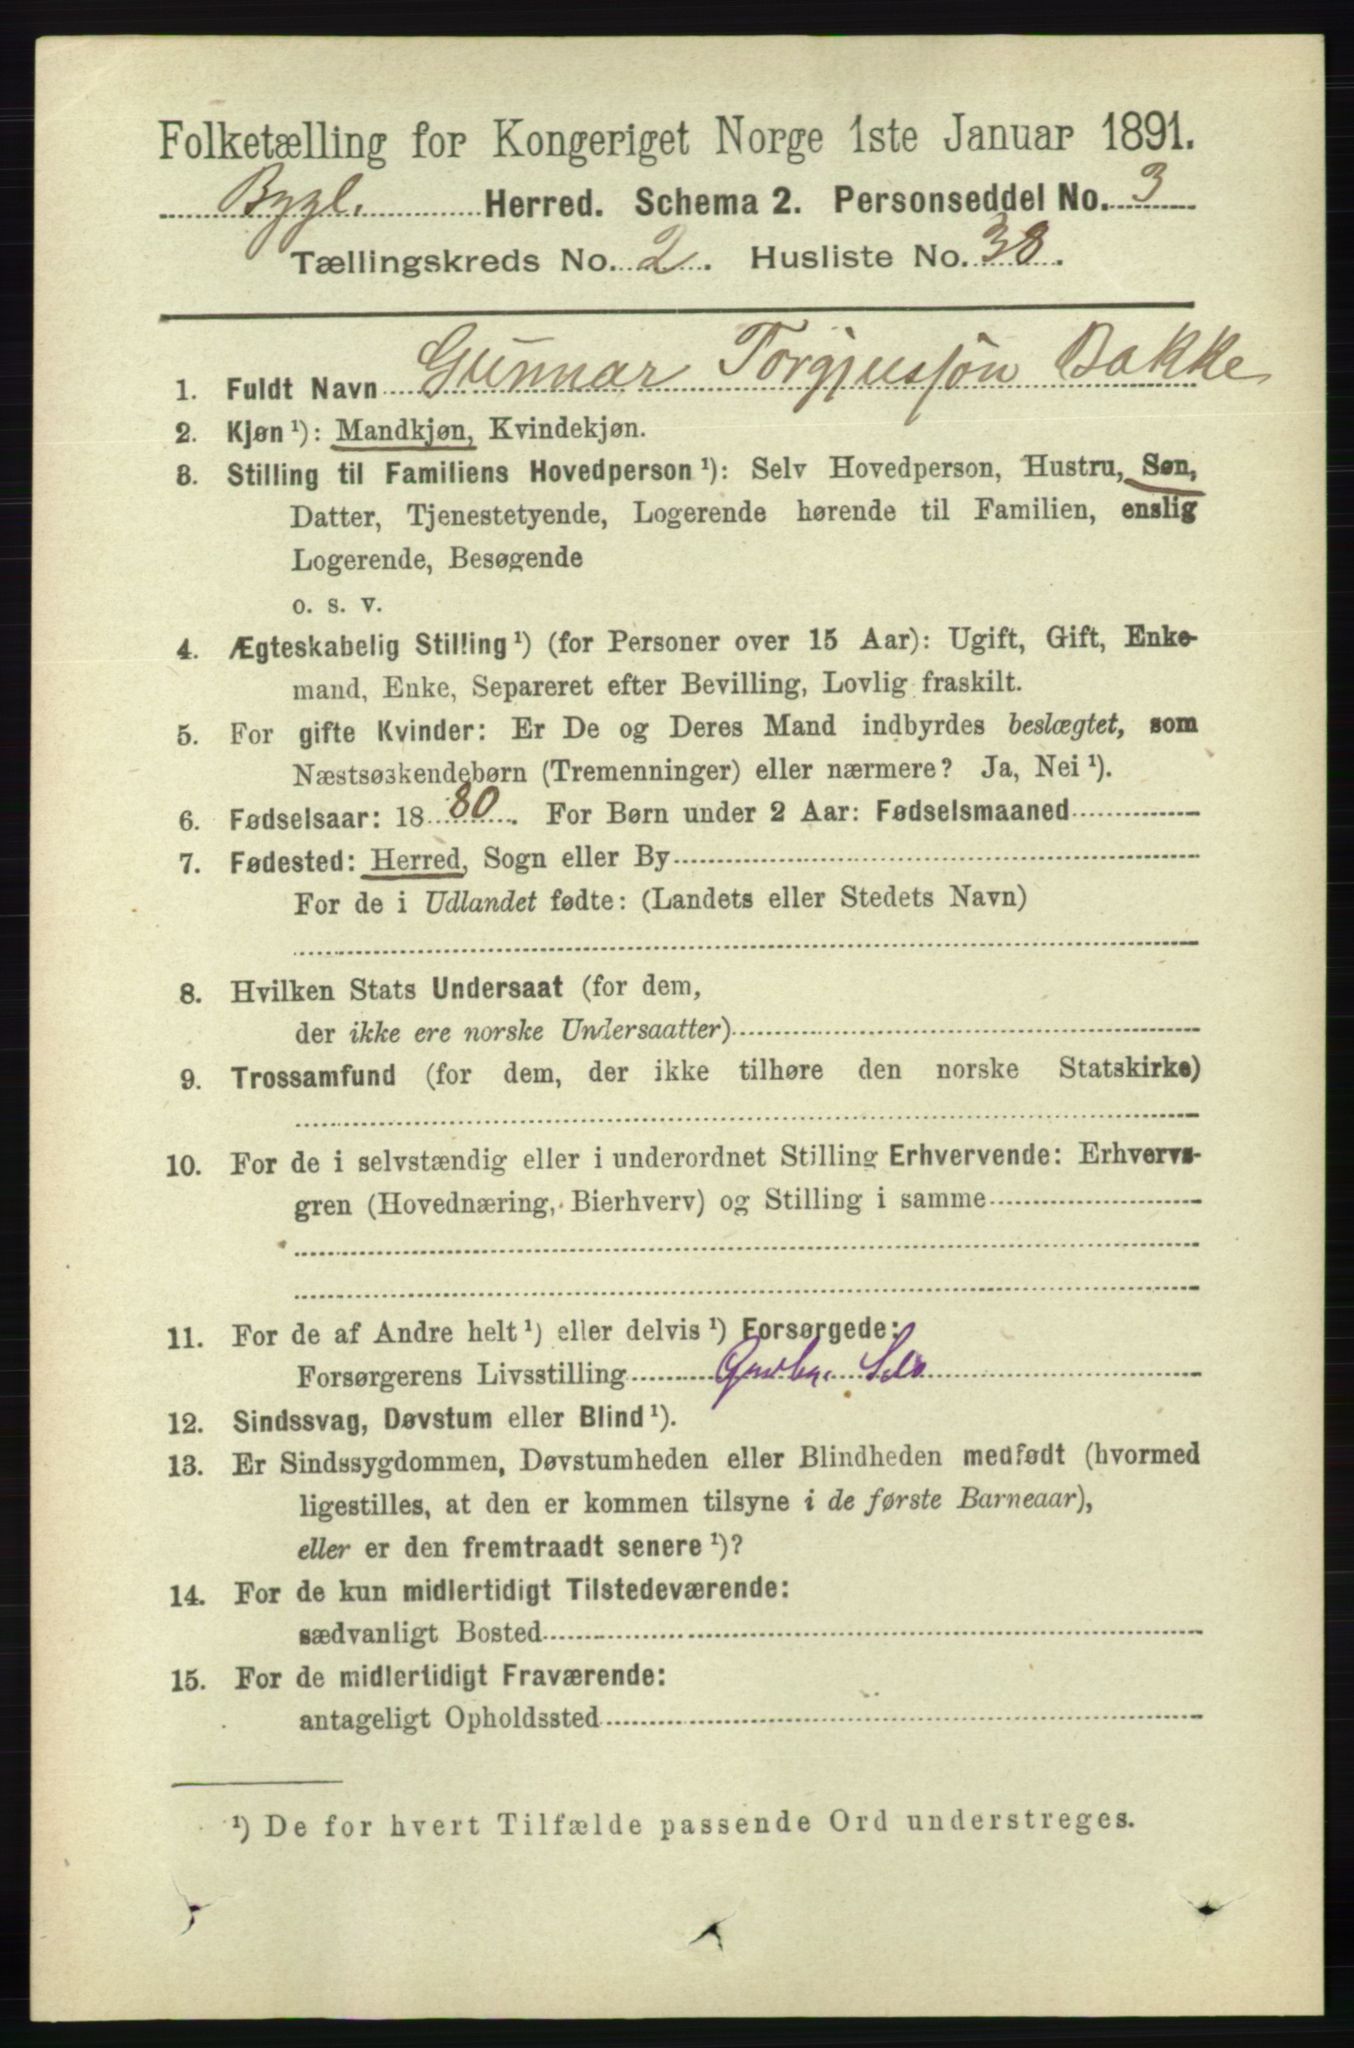 Folketælling for Kongeriget Norge 1ste Januar 1891.
Bygl. Herred. Schema 2. Personseddel No. 3
Tællingskreds No. 2. Husliste No. 38.
1. Fuldt Navn Gunnar Torgjussøn Bakke
2. Kjøn ¹): Mandkjøn, Kvindekjøn.
3. Stilling til Familiens Hovedperson ¹): Selv Hovedperson, Hustru, Søn,
Datter, Tjenestetyende, Logerende hørende til Familien, enslig
Logerende, Besøgende
o. s. v.
4. Ægteskabelig Stilling ¹) (for Personer over 15 Aar): Ugift, Gift, Enke-
mand, Enke, Separeret efter Bevilling, Lovlig fraskilt.
5. For gifte Kvinder: Er De og Deres Mand indbyrdes beslægtet, som
Næstsøskendebørn (Tremenninger) eller nærmere? Ja, Nei ¹).
6. Fødselsaar: 1880. For Børn under 2 Aar: Fødselsmaaned
7. Fødested: Herred, Sogn eller By
For de i Udlandet fødte: (Landets eller Stedets Navn)
8. Hvilken Stats Undersaat (for dem,
der ikke ere norske Undersaatter)
9. Trossamfund (for dem, der ikke tilhøre den norske Statskirke)
10. For de i selvstændig eller i underordnet Stilling Erhvervende: Erhvervs-
gren (Hovednæring, Bierhverv) og Stilling i samme
11. For de af Andre helt ¹) eller delvis ¹) Forsørgede:
Forsørgerens Livsstilling
12. Sindssvag, Døvstum eller Blind ¹).
13. Er Sindssygdommen, Døvstumheden eller Blindheden medfødt (hvormed
ligestilles, at den er kommen tilsyne i de første Barneaar),
eller er den fremtraadt senere ¹)?
14. For de kun midlertidigt Tilstedeværende:
sædvanligt Bosted
15. For de midlertidigt Fraværende:
antageligt Opholdssted
¹) De for hvert Tilfælde passende Ord understreges.